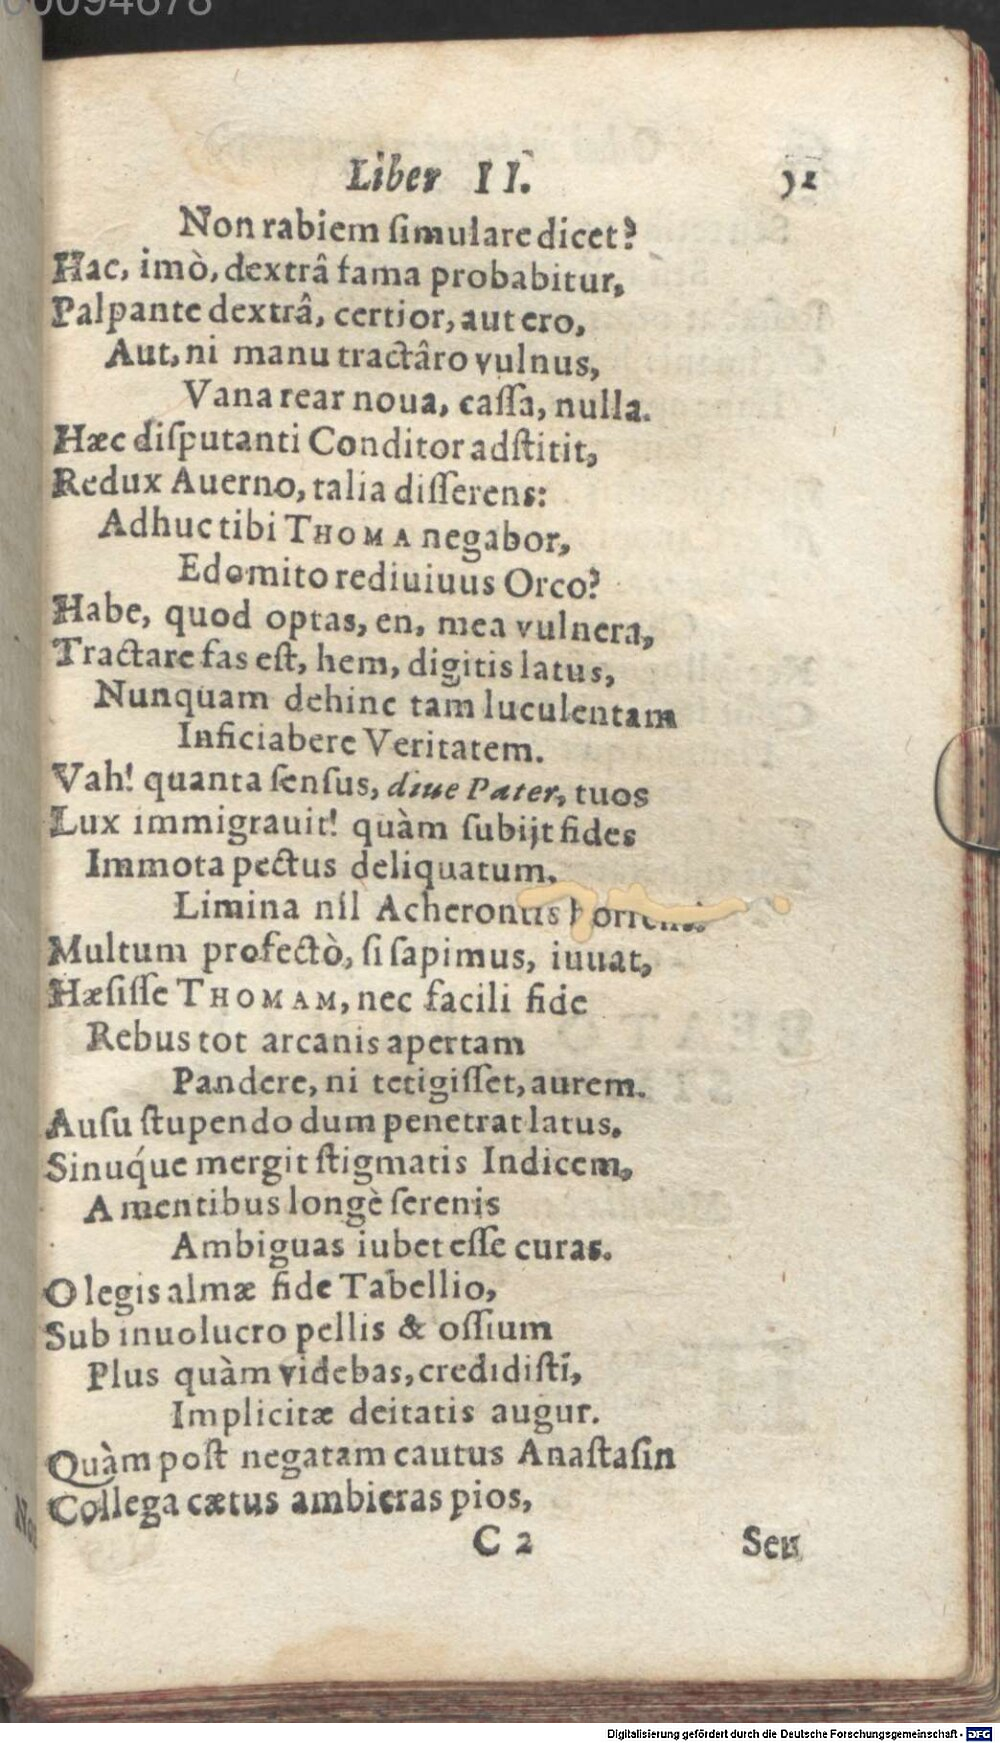 00094678
Liber II.
Non rabiem ſimulare dicet?
Hac, imò, dextrâ fama probabitur,
Palpante dextrâ, certior, aut ero,
Aut, ni manu tractâro vulnus,
Vana rear noua, caſſa, nulla.
Hæc diſputanti Conditor adſtitit,
Redux Auerno, talia diſſerens:
Adhuc tibi THOMA negabor,
Edomito rediuiuus Orco?
Habe, quod optas, en, mea vulnera,
Tractare fas eſt, hem, digitis latus,
Nunquam dehinc tam luculentam
Inficiabere Veritatem.
Vah! quanta ſenſus, diue Pater, tuos
Lux immigrauit! quàm ſubijt fides
Immota pectus deliquatum,
Limina nil Acherontis
Multum profectò, ſi ſapimus, iuuat,
Hæſiſſe THOMAM, nec facili fide
Rebus tot arcanis apertam
Pandere, ni tetigiſſet, aurem.
Auſu ſtupendo dum penetrat latus.
Sinuq́ue mergit ſtigmatis Indicem,
A mentibus longè ſerenis
Ambiguas iubet eſſe curas.
O legis almæ fide Tabellio,
Sub inuolucro pellis & oſſium
Plus quàm videbas, credidiſti,
Implicitæ deitatis augur.
Quàm poſt negatam cautus Anaſtaſin
Collega cætus ambieras pios,
C 2 Seu
Digitalisierung gefördert durch die Deutsche Forschungsgemeinschaft - DFG